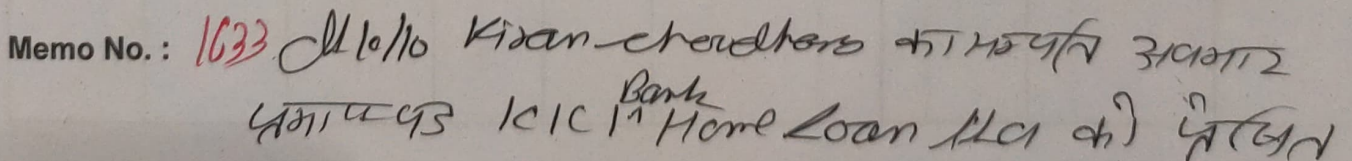 Memo No. : 1633 Kiran chowdhary का सम्पति
प्रमाण पत्र ICICI Bank Home Loan को प्रेषित